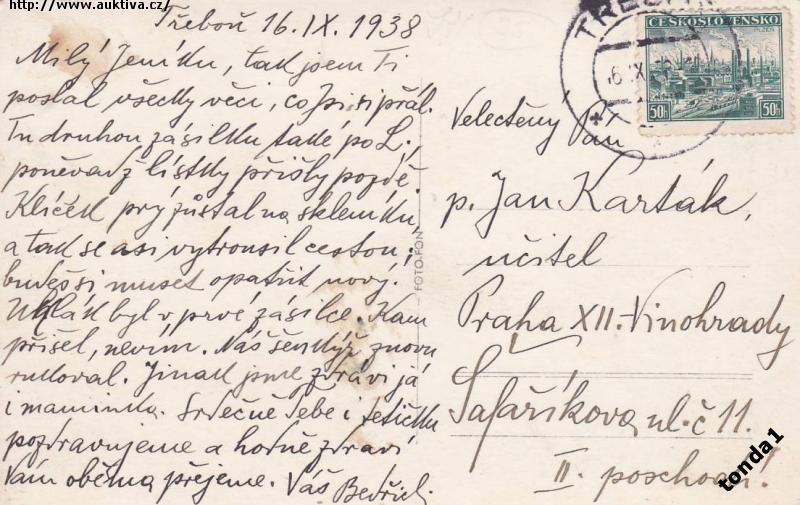 http://www.auktiva.cz/
Třeboň 16.IX.1938
Milý Jeníku, tak jsem Ti
poslal všecky věci, co jsi si přál.
Tu druhou zásilku také po L.,
poněvadž lístky přišly pozdě.
Klíček prý zůstal na skleníku,
a tak se asi vytrousil cestou;
budeš si muset opatřit nový.
byl v prvé zásilce. Kam
přišel, nevím. Náš znovu
rukoval. Jinak jsme zdrávi já
i maminka. Srdečně Tebe i tetičku
pozdravujeme a hodně zdraví
Vám oběma přejeme. Váš Bedřich.
FOTO-FON
TŘEBOŇ
ČESKOSLOVENSKO
PLZEŇ
50h 50h
Velectěný Pan
p. Jan Karták,
učitel
Praha XII.-Vinohrady
Šafaříkova ul. č 11.
II. poschodí!
tonda1